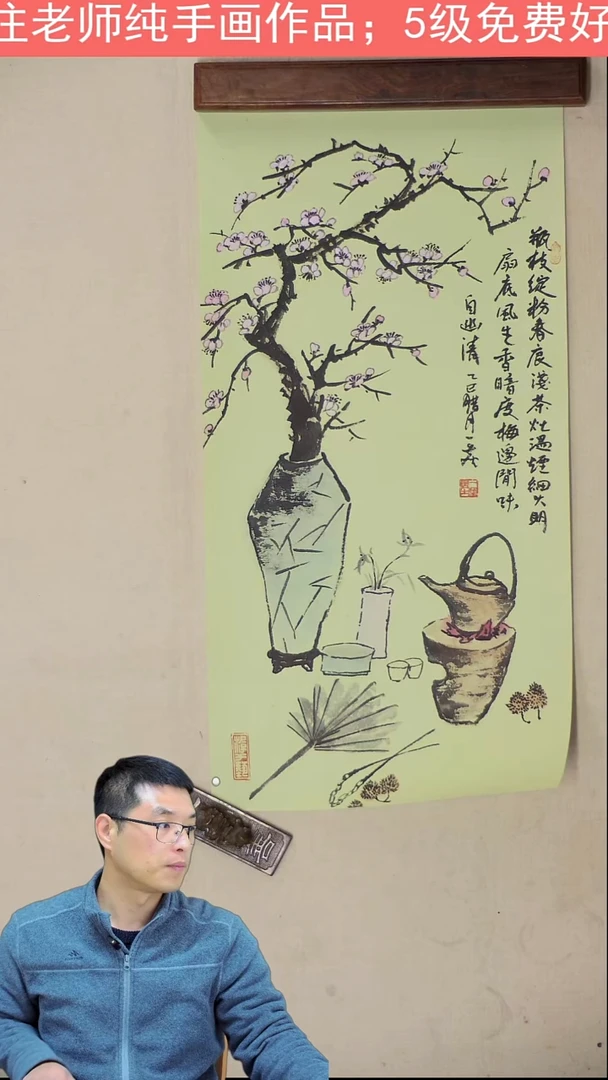 注老师纯手画作品；5级免费好
瓶枝綻粉春痕淺茶灶温煙細火明
扇底風生香暗度梅邊閒味
自幽清 乙巳腊月一